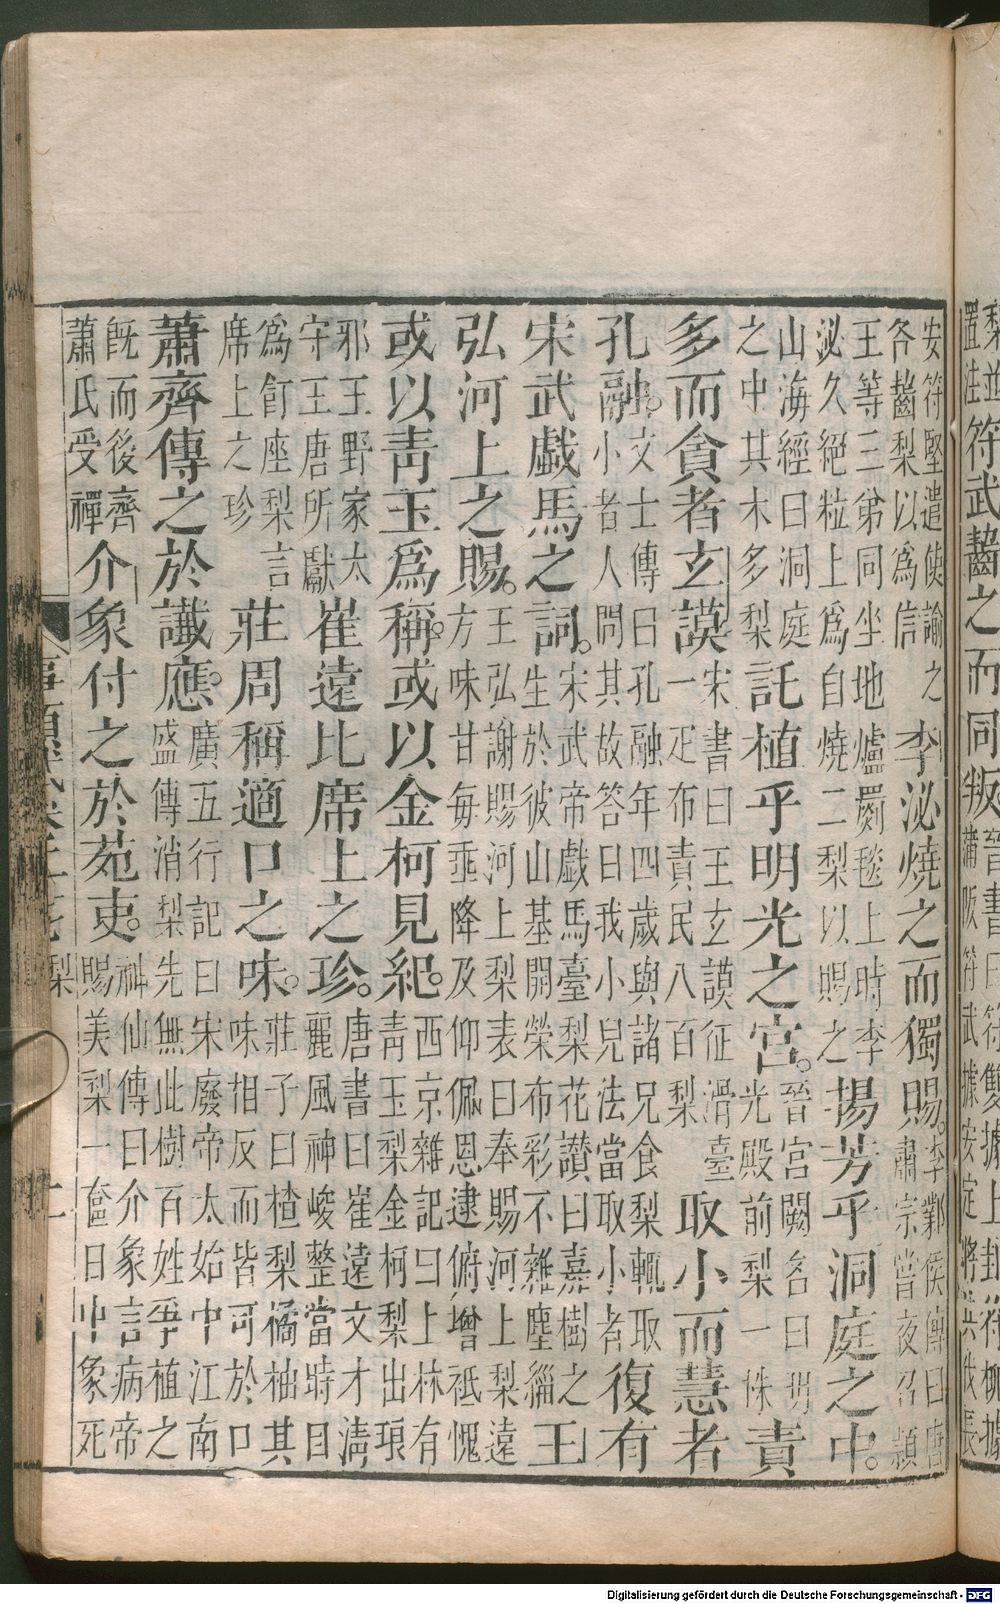 梨並置洼符武齧之而同叛晉書曰符雙據上邽符柳據蒲阪符武據安定將共伐長
安符堅遣使諭之各齧梨以爲信李泌燒之而獨賜。李鄴侯傳曰唐肅宗嘗夜召潁
王等三弟同坐地爐罽毯上時李泌久絕粒上爲自燒二梨以賜之揚芳乎洞庭之中。
山海經曰洞庭之中其木多梨託植乎明光之宮。晉宮闕名曰明光殿前梨一株責
多而貪者玄謨宋書曰王玄謨征滑臺一疋布責民八百梨取小而慧者
孔融。文士傳曰孔融年四歲與諸兄食梨輒取小者人問其故答曰我小兒法當取小者復有
宋武戲馬之詞。宋武帝戲馬臺梨花讃曰嘉樹之生於彼山基開榮布彩不雜塵緇王
弘河上之賜。王弘謝賜河上梨表曰奉賜河上梨遠方味甘每垂降及仰佩恩逮俯增祗愧
或以青玉爲稱。或以金柯見紀。西京雜記曰上林有青玉梨金柯梨出琅
邪王野家太守王唐所獻崔遠比席上之珍。唐書曰崔遠文才清麗風神峻整當時目
爲飣座梨言席上之珍莊周稱適口之味。莊子曰楂梨橘柚其味相反而皆可於口
蕭齊傳之於讖應。廣五行記曰宋廢帝太始中江南盛傳消梨先無此樹百姓爭植之
旣而後齊蕭氏受禪介象付之於苑吏。神仙傳曰介象言病帝賜美梨一奩日中象死
梨 二
Digitalisierung gefördert durch die Deutsche Forschungsgemeinschaft - DFG